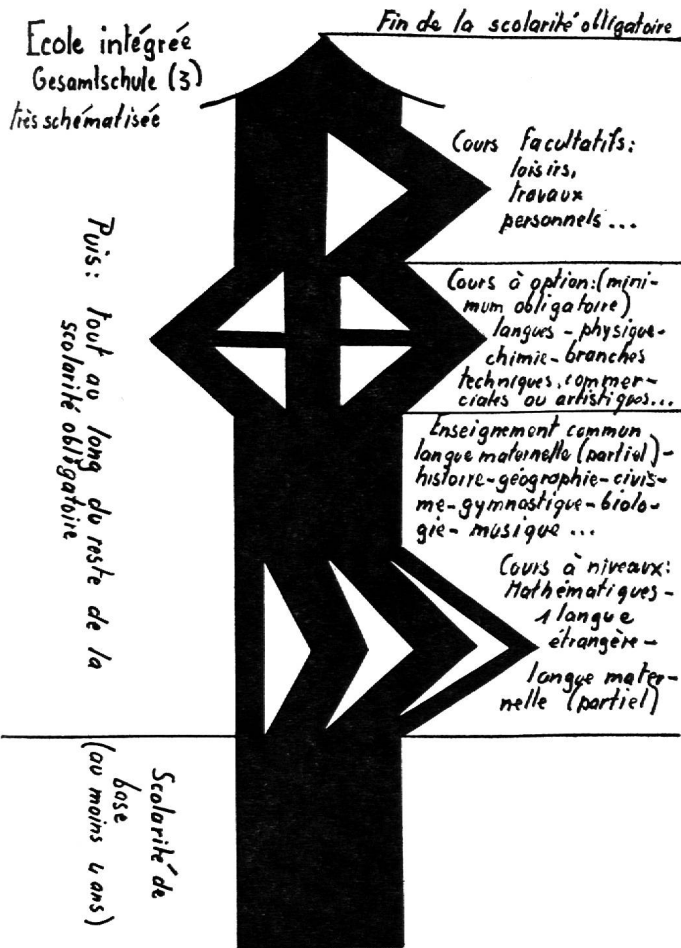 Ecole intégrée
Gesamtschule (3)
très schématisée
Fin de la scolarité obligatoire
Cours facultatifs:
loisirs,
travaux
personnels...
Cours à option:(mini-
mum obligatoire)
langues - physique-
chimie-branches
techniques, commer-
ciales ou artistiques...
Enseignement commun
langue maternelle (partiel)-
histoire-géographie-civis-
me-gymnastique-biolo-
gie- musique ...
Cours à niveaux:
Mathématiques-
1 langue
étrangère-
langue mater-
nelle (partiel)
Puis: tout au long du reste de la
scolarité obligatoire
Scolarité de
base
(au moins 4 ans)